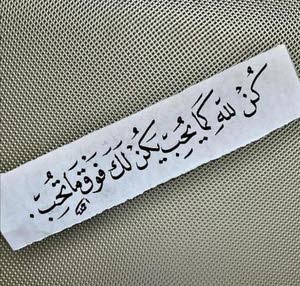 كُنْ لِلّٰهِ كَمَا يُحِبّ يَكُنْ لَكَ فَوْقَ مَا تُحِبّ.